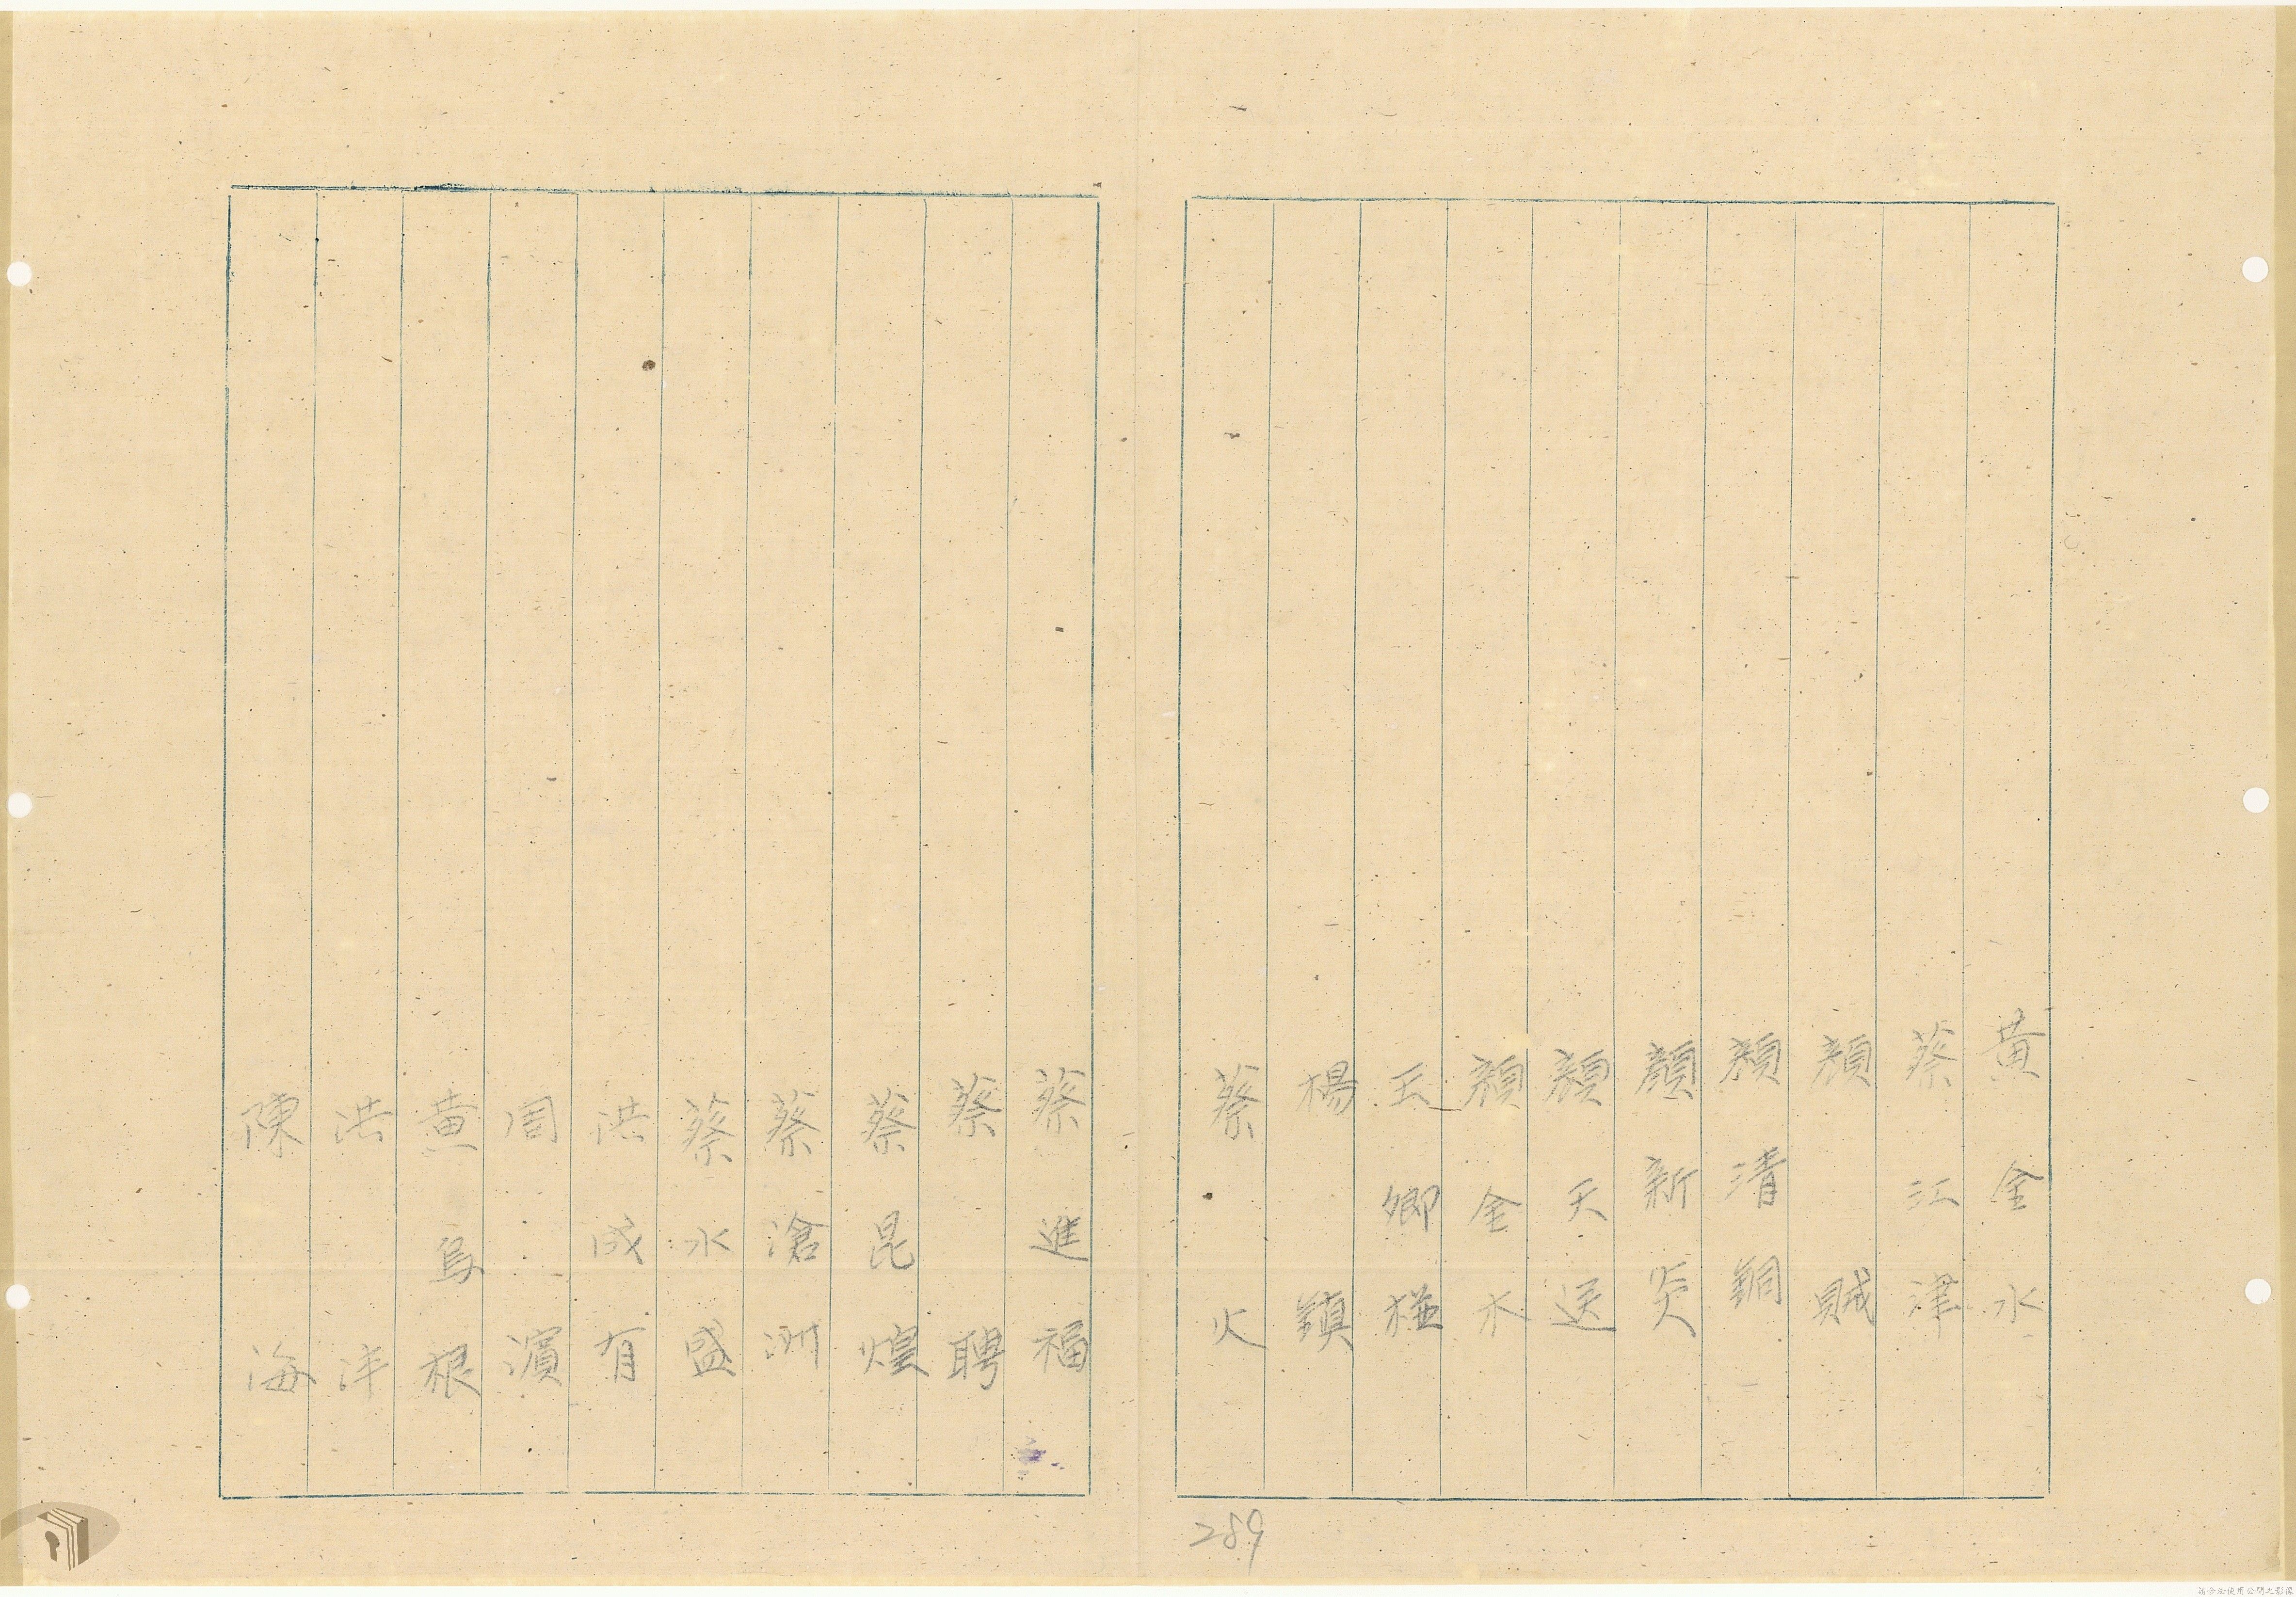 黃金水
蔡江津
顏賊
顏清銅
顏新炎
顏天送
顏金木
王卿
楊鎮
蔡火
蔡進福
蔡聘
蔡昆煌
蔡滄洲
蔡水盛
洪成有
周濱
黃烏根
洪洋
陳海
289
請合法使用公開之影像